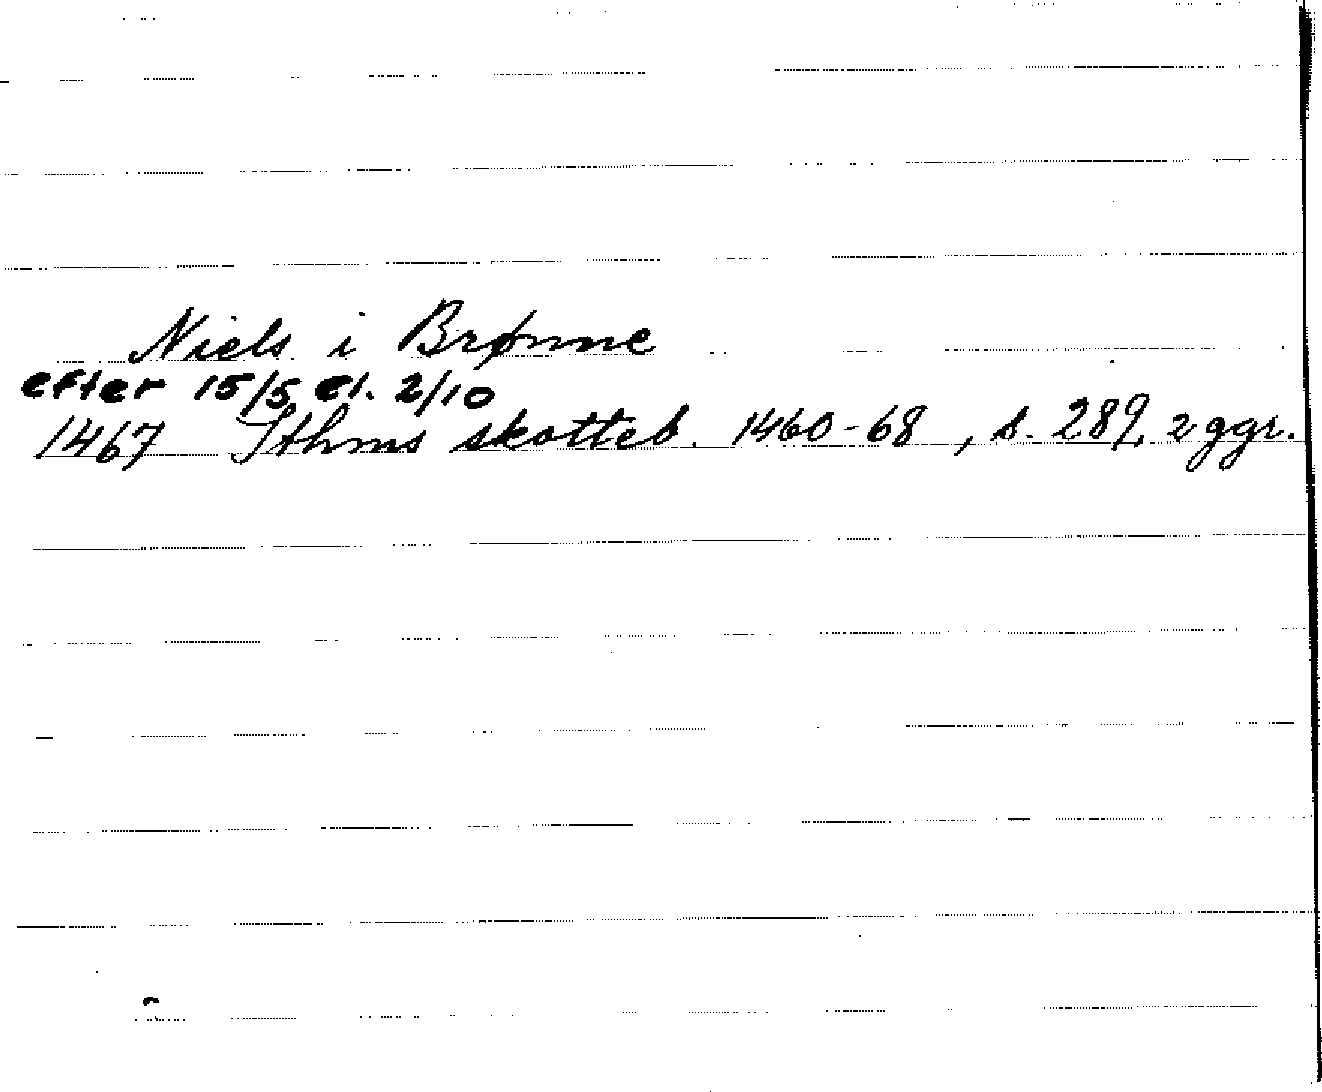 Niels i Brønne
efter 15/5 el. 2/10
1467 Sthms skotteb. 1460-68, s. 289, 2 ggr.